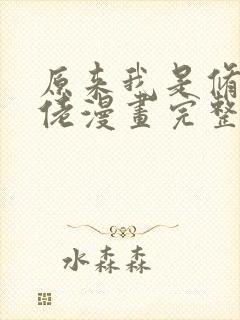 原来我是修
佬漫畫完整
水森森